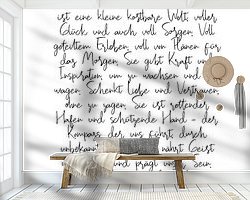 ist eine kleine kostbare Welt, voller
Glück und auch voll Sorgen. Voll
gelebtem Erleben, voll von Plänen für
das Morgen. Sie gibt Kraft und
Inspiration, um zu wachsen und
wagen. Schenkt Liebe und Vertrauen,
ohne zu zagen. Sie ist rettender
Hafen und schützende Hand - der
Kompass, der uns führt, durch
unbekannt nährt Geist
und prägt sein.